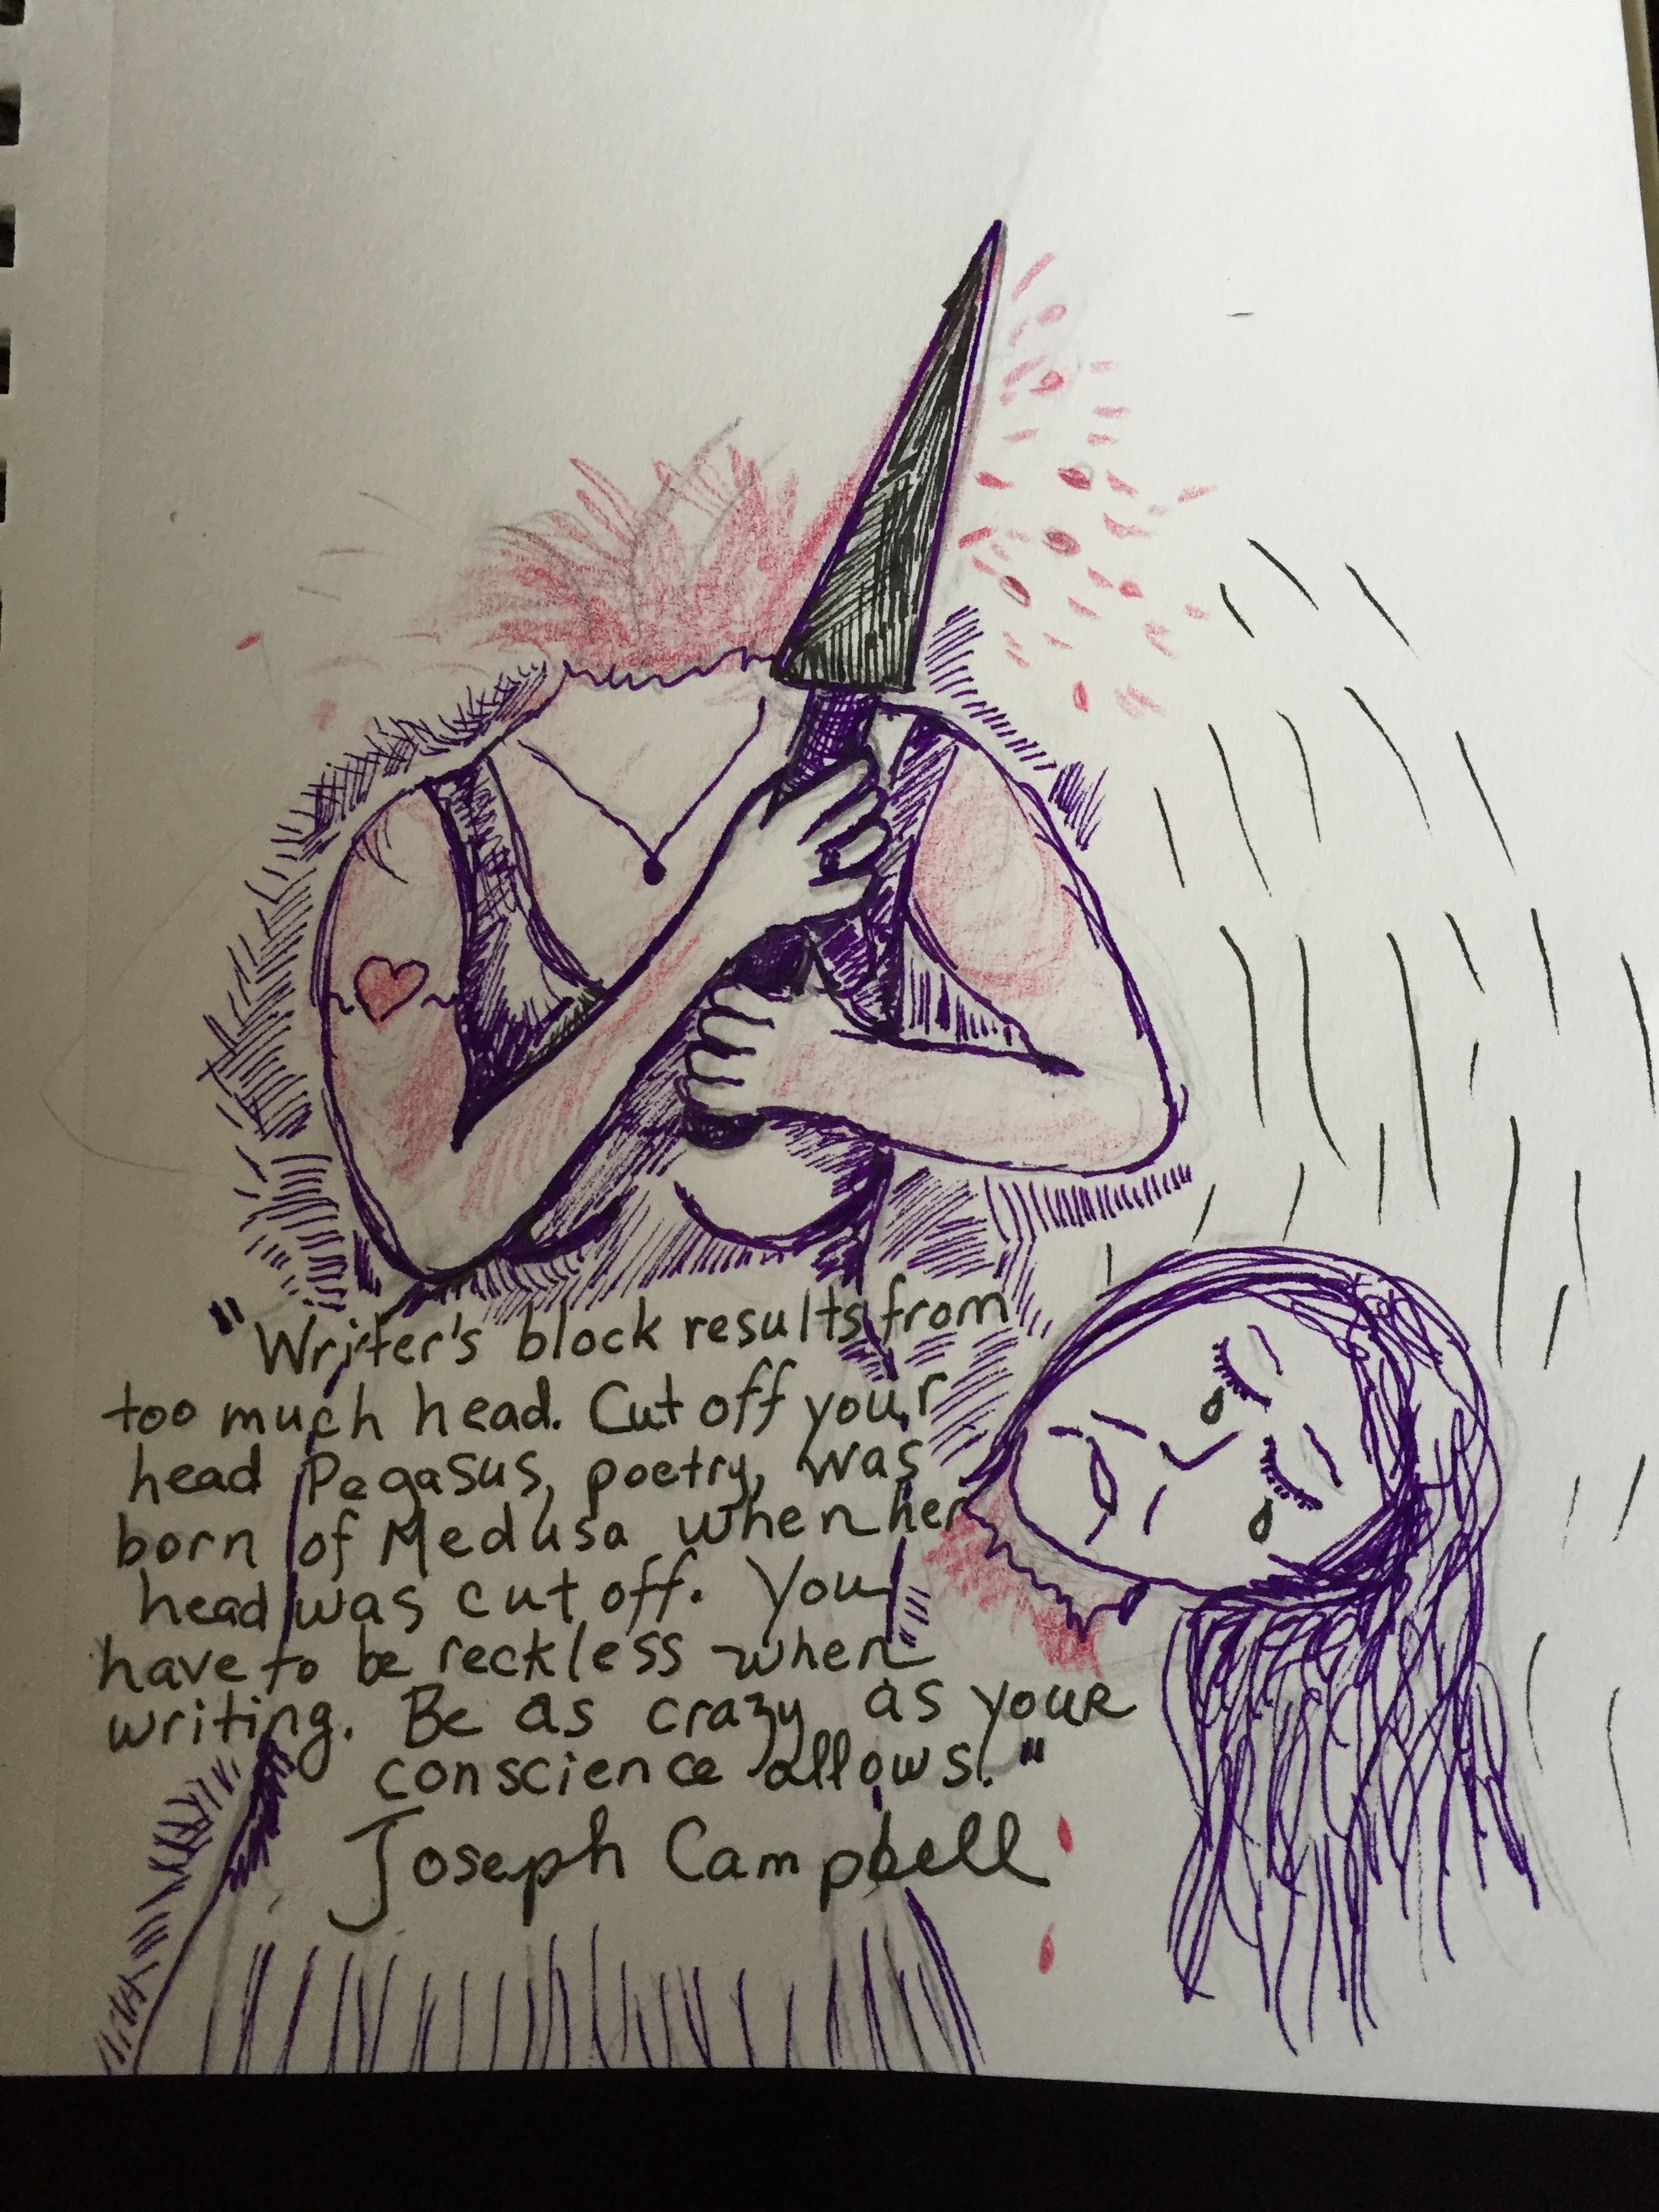 "Writer's block results from
too much head. Cut off your
head Pegasus, poetry, was
born of Medusa when her
head was cut off. You
have to be reckless when
writing. Be as crazy as your
conscience allows."
Joseph Campbell